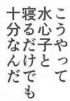 こうやって
水心子と
寝るだけでも
十分なんだ